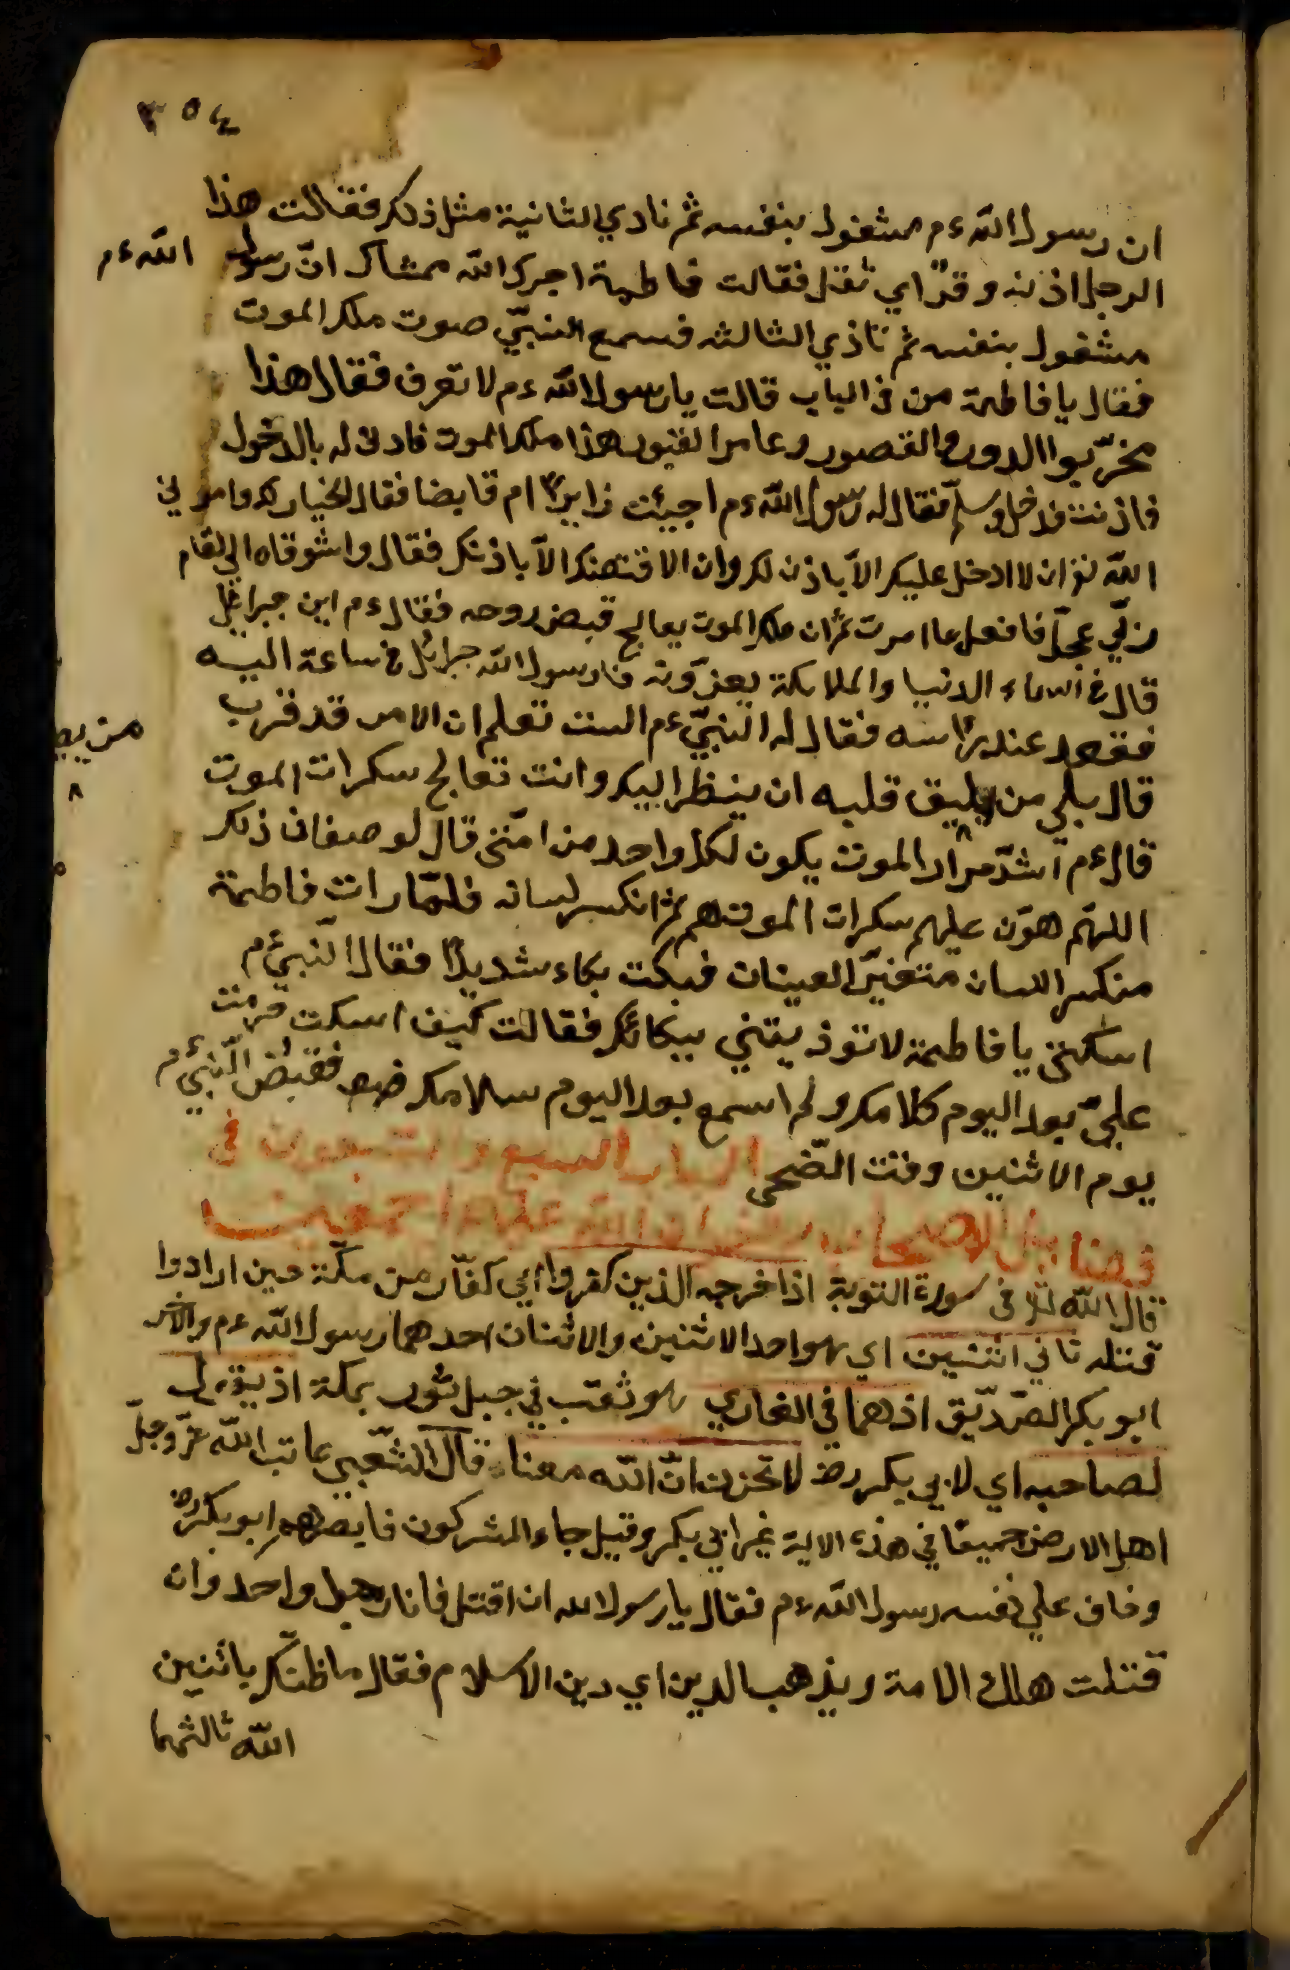 ٣٥٤
ان رسول الله ءم مشغول بنفسه ثم نادي الثانية مثل ذلك فقالت هذا
الرجل اذنه وقرًا اي ثقل فقالت فاطمة اجرك الله ممشاك انّ رسول الله ءم
مشغول بنفسه ثم نادي الثالثه فسمع النبيّ صوت ملك الموت
فقال يا فاطمة من في الباب قالت يا رسول الله ءم لا تعرف فقال هذا
مخرّبوا الدور والقصور وعامر القبور هذا ملك الموت فادني له بالدخول
فاذنت فدخل وسلم فقال له رسول الله ءم اجيئت زايرًا ام قابضا فقال الخيار لك وامرني
الله تع ان لا ادخل عليك الّا باذن لك وان لا اقبضك الّا باذنك فقال واشوقاه الي لقاء
ربّي عجّل فافعل ما امرت ثم ان ملك الموت يعالج قبض روحه فقال ءم اين جبرائيل
قال في السماء الدنيا والملائكة يعزّونه فارسول الله جبرائل في ساعة اليه
فقعد عند رأسه فقال له النبيّ ءم الست تعلم ان الامر قد قرب
قال بلي من يليق قلبه ان ينظر اليك وانت تعالج سكرات الموت
من يط
قال ءم اشدّ مرار الموت يكون لكل واحد من امّتي قال لو صفان ذلك
اللهّم هوّن عليهم سكرات الموت هم ثم انكسر لسانه فلمّا رات فاطمة
منكسر اللسان متغيرّ العينان فبكت بكاء شديدًا فقال النّبي ءم
اسكتي يا فاطمة لا توذيتني ببكائك فقالت كيف اسكت حرمت
عليّ بعد اليوم كلامك ولم اسمع بعد اليوم سلامك فقبض النّبي ءم
يوم الاثنين وقت الضّحي الباب السبع والتسعون في
فضائل الاصحاب رضوان الله عليهم اجمعين
قال الله تع في سورة التوبة اذا خرجه الذين كفروا اي كفّار من مكّة حين ارادوا
قتله ثاني اثنين اي هو احد الاثنين والاثنان احدهما رسول الله ءم والاخر
ابو بكر الصّديّق اذهما في الغار اي هو ثقب في جبل ثور بمكة اذ يقول
لصاحبه اي لابي بكر رض لا تحزن انّ الله معنا قال الشّعبي عاتب الله عزّ وجلّ
اهل الارض جميعًا في هذه الاية غير ابي بكر وقيل جاء المشركون فابصرهم ابو بكر رض
وخاف علي نفسه رسول الله ءم فقال يا رسول الله ان اقتل فانا رجل واحد وان
قتلت هلك الامة ويذهب الدين اي دين الاسلام فقال ما ظنّك باثنين
الله ثالثهما